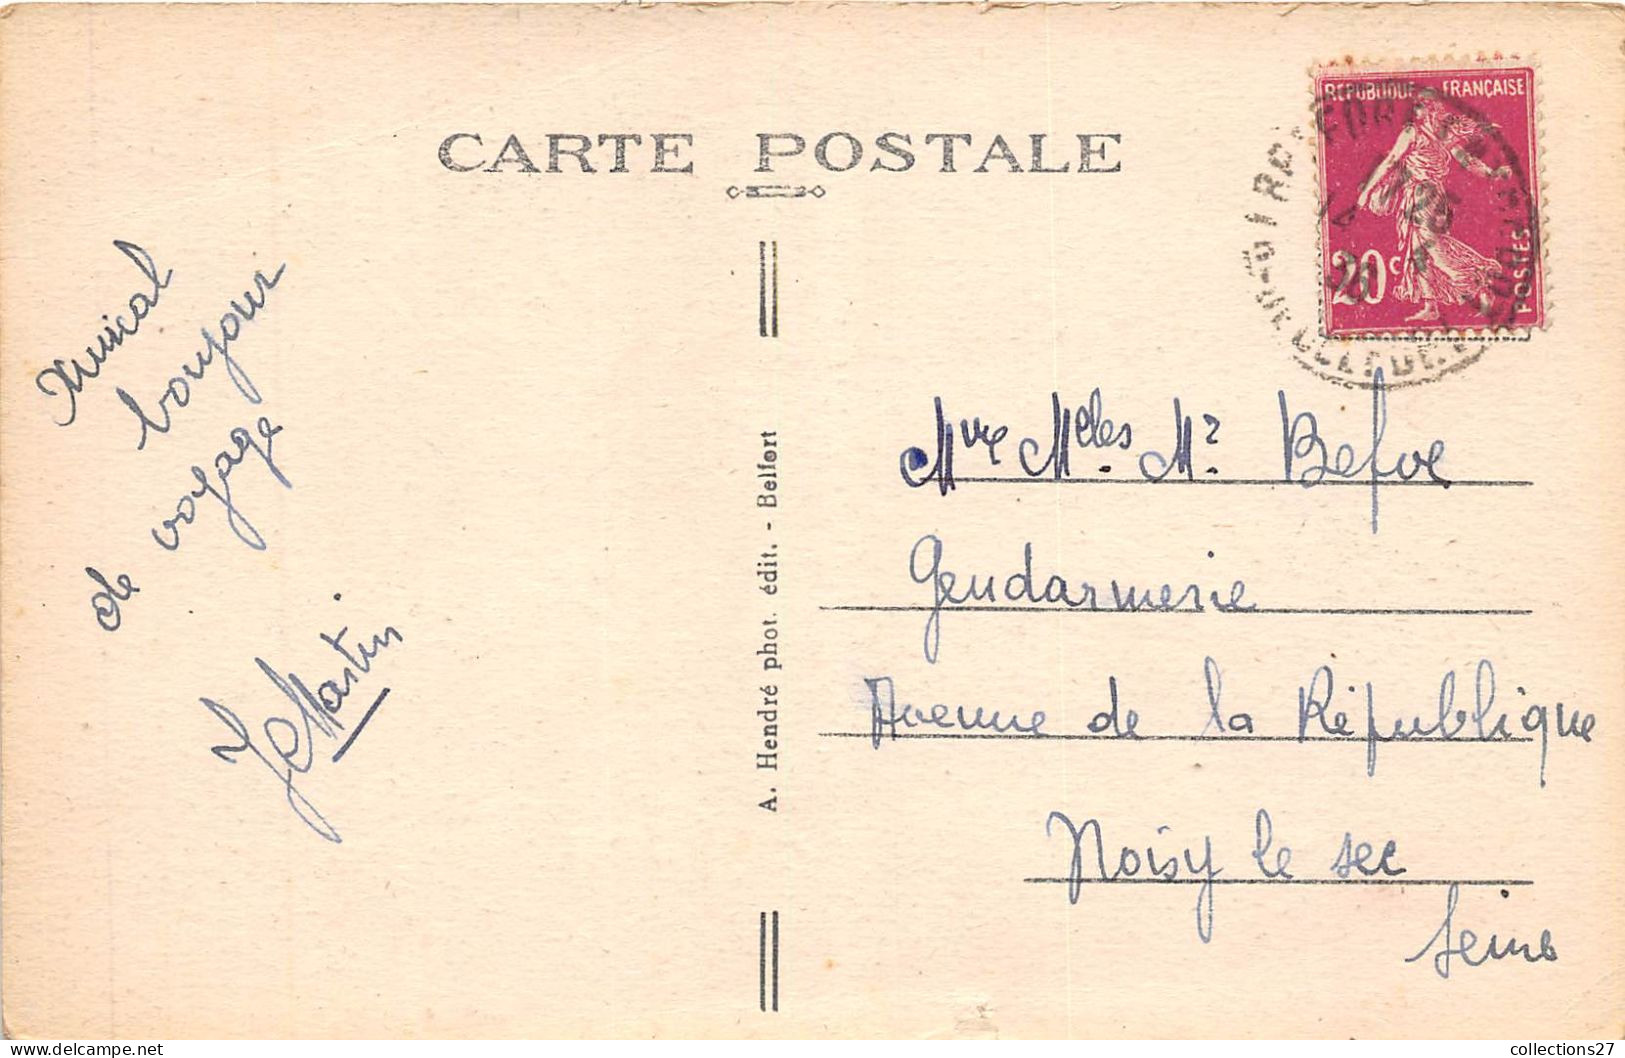 CARTE POSTALE
REPUBLIQUE FRANÇAISE
20c
POSTES
bonjour
de voyage
Martin
A. Hendré phot. édit. - Belfort
Mme Melles Mr Befve
Gendarmerie
Avenue de la République
Noisy le sec
Seine
collections27